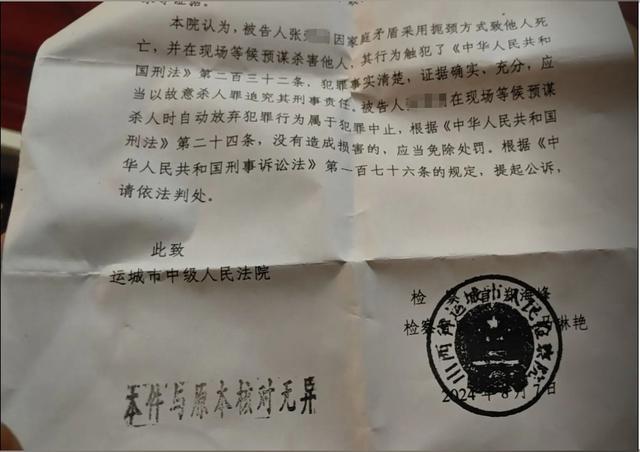 本院认为，被告人张 因家庭矛盾采用扼颈方式致他人死
亡，并在现场等候预谋杀害他人，其行为触犯了《中华人民共和
国刑法》第二百三十二条，犯罪事实清楚，证据确实、充分，应
当以故意杀人罪追究其刑事责任。被告人 在现场等候预谋
杀人时自动放弃犯罪行为属于犯罪中止，根据《中华人民共和国
刑法》第二十四条，没有造成损害的，应当免除处罚。根据《中
华人民共和国刑事诉讼法》第一百七十六条的规定，提起公诉，
请依法判处。
此致
运城市中级人民法院
检
检察
琳艳
山西省运城市人民检察院
2024年8月
本件与原本核对无异